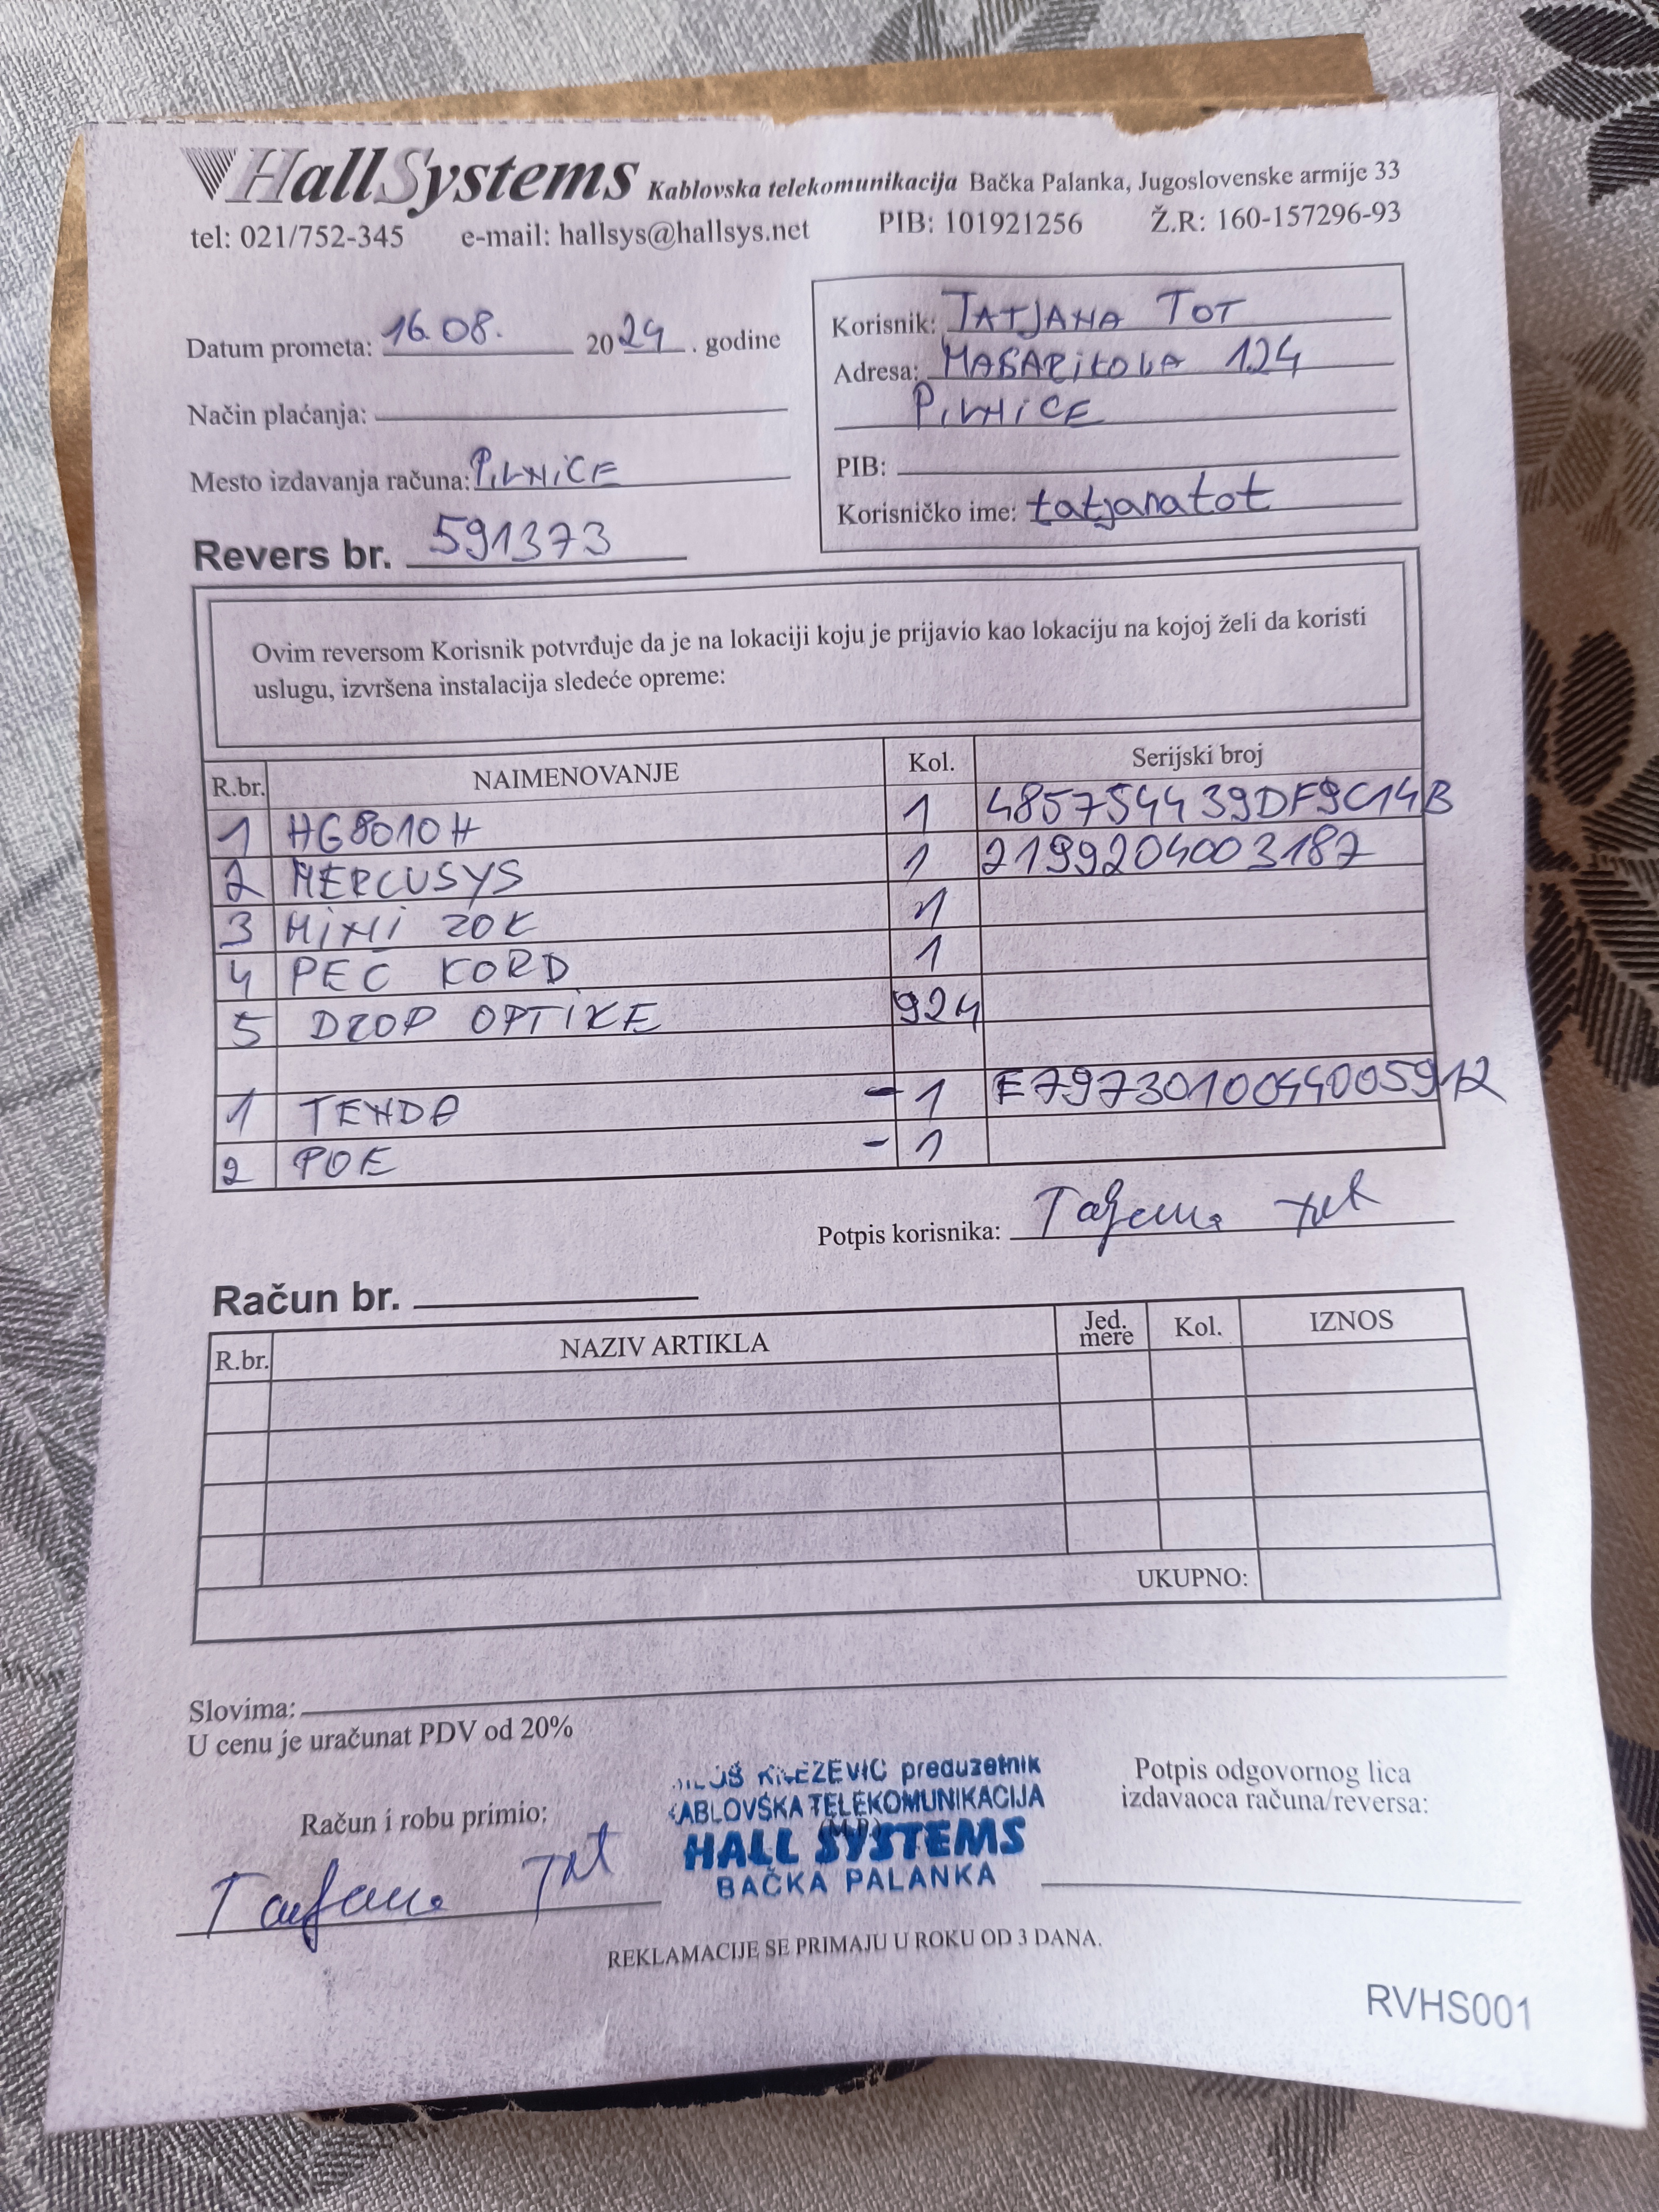 HallSystems Kablovska telekomunikacija Bačka Palanka, Jugoslovenske armije 33
tel: 021/752-345 e-mail: hallsys@hallsys.net PIB: 101921256 Ž.R: 160-157296-93
Datum prometa: 16.08. 2024. godine
Način plaćanja:
Mesto izdavanja računa: PIVNICE
Revers br. 591373
Korisnik: TATJANA TOT
Adresa: MASARIKOVA 124
PIVNICE
PIB:
Korisničko ime: tatjanatot
Ovim reversom Korisnik potvrđuje da je na lokaciji koju je prijavio kao lokaciju na kojoj želi da koristi
uslugu, izvršena instalacija sledeće opreme:
R.br. NAIMENOVANJE Kol. Serijski broj
1 HG8010H 1 485754439DF9C14B
2 MERCUSYS 1 2199204003187
3 MINI ZOK 1
4 PEČ KORD 1
5 DROP OPTIKE 924
1 TENDA - 1 E7973010044005912
2 POE - 1
Potpis korisnika: Tatjana Tot
Račun br.
R.br. NAZIV ARTIKLA Jed. mere Kol. IZNOS
UKUPNO:
Slovima:
U cenu je uračunat PDV od 20%
Račun i robu primio:
Tatjana Tot
KNEZEVIC preduzetnik
KABLOVSKA TELEKOMUNIKACIJA
(M.P.)
HALL SYSTEMS
BAČKA PALANKA
Potpis odgovornog lica
izdavaoca računa/reversa:
REKLAMACIJE SE PRIMAJU U ROKU OD 3 DANA.
RVHS001